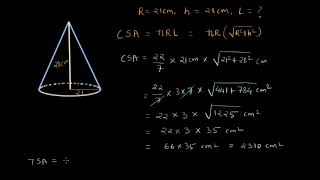 R = 21cm, h = 28cm, L = ?
CSA = πRL = πR(√R²+h²)
CSA = 22/7 × 21cm × √21²+28² cm
= 22/7 × 3×7 × √441+784 cm²
= 22 × 3 × √1225 cm²
= 22 × 3 × 35 cm²
= 66×35 cm² = 2310 cm²
28cm
21
TSA =